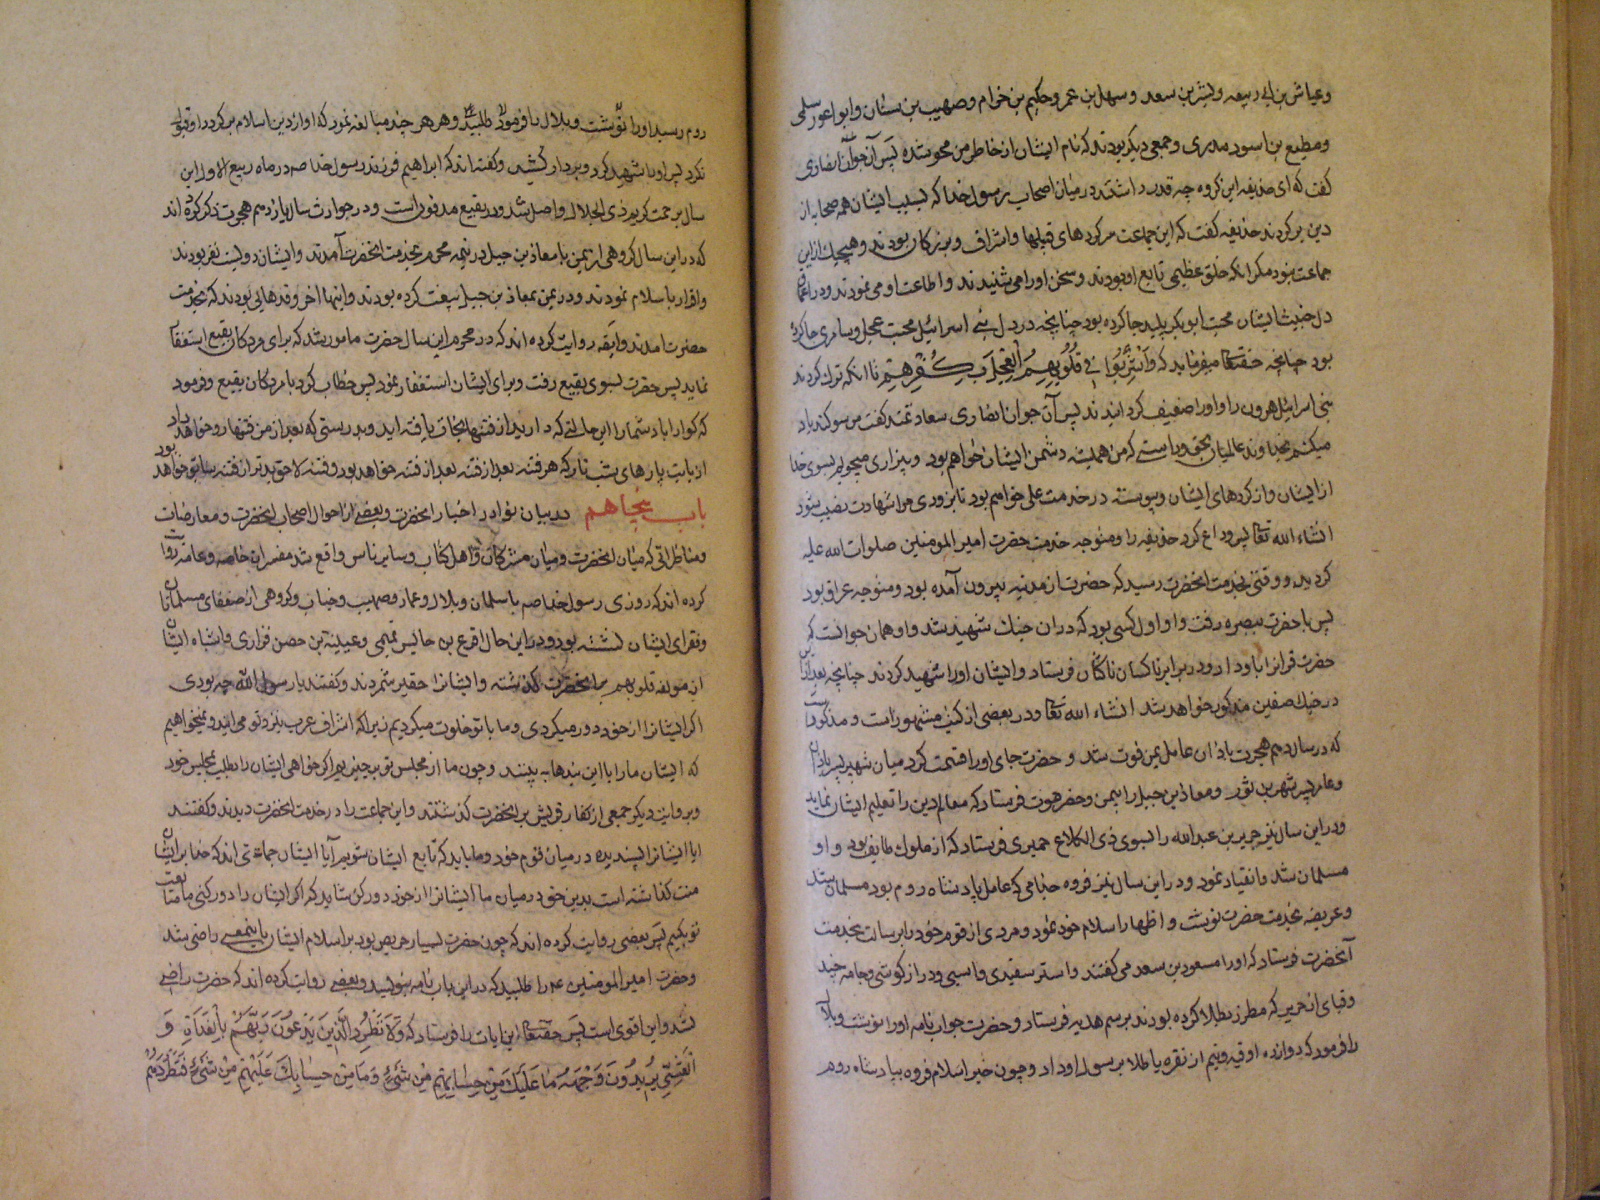 وعیاش بن ابی ربیعه وبشر بن سعد و سهل بن عمر و حکیم بن خرام و صهیب بن سنان وابو اعور سلمی
و مطیع بن اسود مدری و جمعی دیکر بودند که نام ایشان از خاطر من محو شده پس آن جوان انصاری
کفت که ای حذیفه این کروه چه قدر داشتند در میان اصحاب رسول خدا که بسبب ایشان همه صحابه از
دین بر کردند حذیفه کفت که این جماعت سرکرده های قبیلها و اشراف و بزرکان بودند و هیچیک از این
جماعت نبود مکر آنکه خلق عظیمی تابع او بودند و سخن او را می شنیدند و اطاعت او می نمودند و در اعماق
دل خبیث ایشان محبت ابو بکر پلید جا کرده بود چنانچه در دل بنی اسرائیل محبت عجل و سامری جا کرده
بود چنانچه حقتعالی میفرماید که وَاُشْرِبُوا فی قُلُوبِهِمُ الْعِجْلَ بِکُفْرِهِمْ تا آنکه ترک کردند
بنی اسرائیل هرون را و او را ضعیف کردانیدند پس آن جوان انصاری سعادتمند کفت من سوکند یاد
میکنم بخداوند عالمیان بحق و راستی که من همیشه دشمن ایشان خواهم بود و بیزاری میجویم بسوی خدا
از ایشان و از کردهای ایشان و پیوسته در خدمت علی خواهم بود تا بزودی مرا شهادت نصیب شود
انشاء الله تعالی پس وداع کرد حذیفه را و متوجه خدمت حضرت امیر المومنین صلوات الله علیه
کردید و وقتی بخدمت آنحضرت رسید که حضرت از مدینه بیرون آمده بود و متوجه عراق بود
پس با حضرت ببصره رفت و او اول کسی بود که در ان جنک شهید شد و او همان جوانست که
حضرت قرانرا باو داد و در برابر ناکسان ناکثان فرستاد و ایشان او را شهید کردند چنانچه بعد از این
در جنک صفین مذکور خواهد شد انشاء الله تعالی و در بعضی از کتب مشهور است و مذکور است
که در سال دهم هجرت باذان عامل یمن فوت شد و حضرت جای او را قسمت کرد میان شهر پسر باذان
و عامر پسر شهر بن ثور و معاذ بن جبل را بیمن و حضرموت فرستاد که معالم دین را تعلیم ایشان نماید
و در این سال نیز جریر بن عبدالله را بسوی ذی الکلاع حمیری فرستاد که از ملوک طایف بود و او
مسلمان شد و انقیاد نمود و در این سال نیز فروه جذامی که عامل پادشاه روم بود مسلمان شد
و عریضه بخدمت حضرت نوشت و اظهار اسلام خود نمود و مردی از قوم خود را برسالت بخدمت
آنحضرت فرستاد که او را مسعود بن سعد می کفتند و استر سفیدی و اسبی و دراز کوشی و جامه چند
و قبای از حریر که مطرز بطلا کرده بودند برسم هدیه فرستاد و حضرت جواب نامه او را نوشت و بلال
را فرمود که دوازده اوقیه و نیم از نقره یا طلا برسول او داد و چون خبر اسلام فروه بپادشاه روم
روم رسید او را نوشت و بلال را فرمود طلبید و هر چند مبالغه نمود که او از دین اسلام بر کردد او قبول
نکرد پس او را شهید کرد و بر دار کشید و کفته اند که ابراهیم فرزند رسول خدا صم در ماه ربیع الاول این
سال برحمت کریم ذی الجلال واصل شد و در بقیع مدفون است و در حوادث سال یازدهم هجرت ذکر کرده اند
که در این سال کروهی از یمن با معاذ بن جبل در نیمه محرم بخدمت آنحضرت آمدند و ایشان دویست نفر بودند
و اقرار باسلام نمودند و در یمن بمعاذ بن جبل بیعت کرده بودند و اینها آخر وفدهائی بودند که بخدمت
حضرت آمدند و ایضه روایت کرده اند که در محرم این سال حضرت مامور شد که برای مردکان بقیع استغفار
نماید پس حضرت بسوی بقیع رفت و برای ایشان استغفار نمود پس خطاب کرد با مردکان بقیع و فرمود
که کوارا باد شما را این حالتی که دارید از فتنها نجات یافته اید و بدرستی که بعد از من فتنها رو خواهد داد
از بابت پارهای شب تار که هر فتنه بعد از فتنه بعد از فتنه خواهد بود و فتنه لاحق بدتر از فتنه سابق خواهد بود
باب پنجاهم در بیان نوادر اخبار آنحضرت و بعضی از احوال اصحاب آنحضرت و معارضات
و مناظراتی که میان آنحضرت و میان مشرکان و اهل کتاب و سایر ناس واقع شد مفسران خاصه و عامه روایت
کرده اند که روزی رسول خدا صم با سلمان و بلال و عمار و صهیب و خباب و کروهی از ضعفای مسلمانان
و فقرای ایشان نشسته بود و در این حال اقرع بن حابس تمیمی و عیینة بن حصن فزاری و اشباه ایشان
از مولفه قلوبهم بر آنحضرت کذشتند و ایشانرا حقیر شمردند و کفتند یا رسول الله چه بودی
اکر ایشانرا از خود دور میکردی و ما با تو خلوت میکردیم زیرا که اشراف عرب بنزد تو می آیند و نمیخواهیم
که ایشان ما را با این بندها به بینند و چون ما از مجلس تو برخیزیم اکر خواهی ایشان را بطلب بمجلس خود
و بروایت دیکر جمعی از کفار قریش بر آنحضرت کذشتند و این جماعت را در خدمت آنحضرت دیدند و کفتند
ایا ایشانرا پسندیده در میان قوم خود و ما باید که تابع ایشان شویم آیا ایشان جماعتی اند که خدا بر ایشان
منت کذاشته است بدین حق در میان ما ایشانرا از خود دور کن شاید که اکر ایشان را دور کنی ما متابعت
تو بکنیم پس بعضی روایت کرده اند که چون حضرت بسیار حریص بود بر اسلام ایشان باینمعنی راضی شد
و حضرت امیر المومنین ع را طلبید که در این باب نامه بنویسد و بعضی روایت کرده اند که حضرت راضی
نشد و این اقوی است پس حقتعالی این ایات را فرستاد که وَلَا تَطْرُدِ الَّذِینَ یَدْعُونَ رَبَّهُمْ بِالْغَداةِ وَ
الْعَشِیِّ یُرِیدُونَ وَجْهَهُ مَا عَلَیْکَ مِنْ حِسَابِهِمْ مِنْ شَیْءٍ وَمَا مِنْ حِسَابِکَ عَلَیْهِمْ مِنْ شَیْءٍ فَتَطْرُدَهُمْ